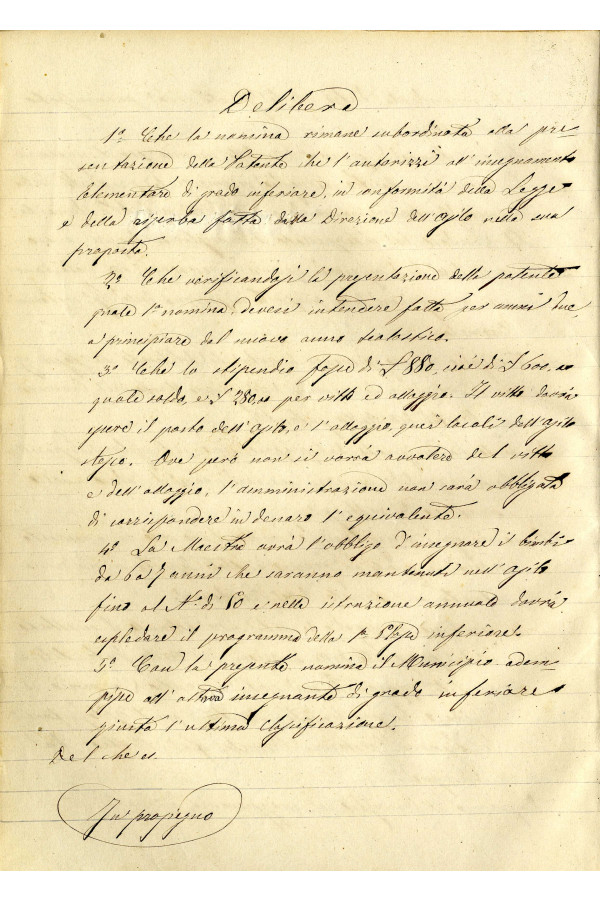 Delibera
1º Che la nomina rimane subordinata alla pre=
sentazione della Patente che l'autorizzi all'insegnamento
Elementare di grado inferiore, in conformità della Legge
e della riserba fatta dalla Direzione dell'Asilo nella sua
proposta.
2º Che verificandosi la presentazione della patente
quale 1ª nomina, devesi intendere fatta per anni due
a principiare dal nuovo anno scolastico.
3º Che lo stipendio fosse di £ 880, cioè di £ 600,00
quale soldo, e £ 280,00 per vitto ed alloggio. Il vitto dovrà
essere il pasto dell'Asilo, e l'alloggio, quei locali dell'Asilo
stesso. Ove però non si vorrà avvalere del vitto
e dell'alloggio, l'amministrazione non sarà obbligata
di corrispondere in denaro l'equivalente.
4º La Maestra avrà l'obbligo d'insegnare i bimbi
da 6 a 7 anni che saranno mantenuti nell'Asilo
fino al Nº di 50 e nella istruzione annuale dovrà
espledare il programma della 1ª Classe inferiore.
5º Con la presente nomina il Municipio adem=
pisse all'altra insegnante di grado inferiore
giusta l'ultima classificazione.
Del che es.
In prosieguo